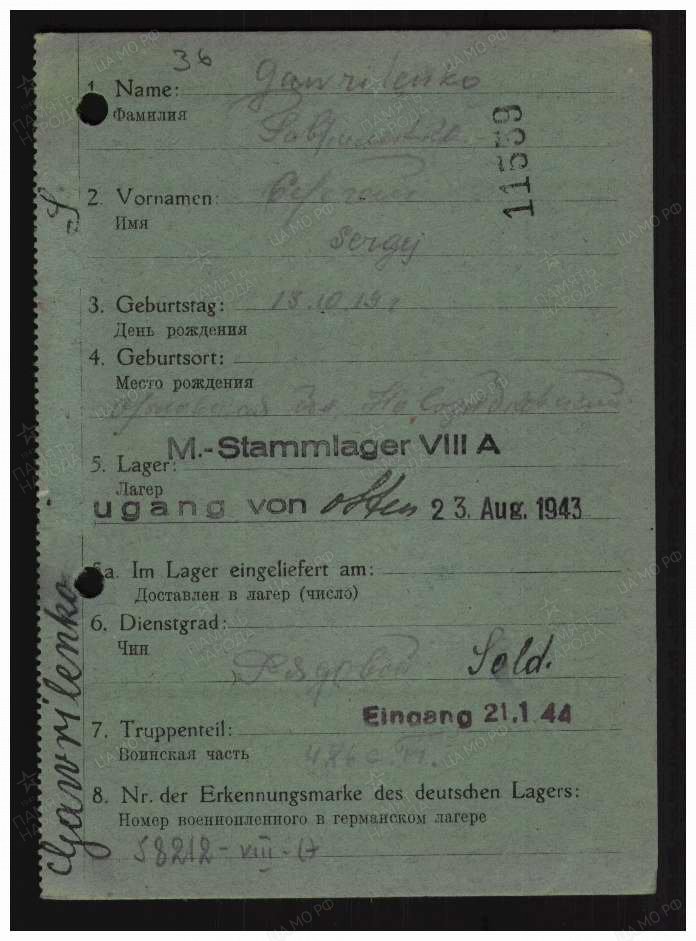 36
1. Name: Gawrilenko
Фамилия
Гавриленко
11559
2. Vornamen: Сергей
Имя
Sergej
S.
3. Geburtstag: 13.10.19 г
День рождения
4. Geburtsort:
Место рождения
M.-Stammlager VIII A
5. Lager:
Лагер
ugang von Osten 23. Aug. 1943
5a. Im Lager eingeliefert am:
Доставлен в лагер (число)
6. Dienstgrad:
Чин
Рядовой Sold.
Eingang 21.1.44
7. Truppenteil:
Воинская часть 486 с.п.
8. Nr. der Erkennungsmarke des deutschen Lagers:
Номер военнопленного в германском лагере
58212 - VIII - A
Gawrilenko
ПАМЯТЬ НАРОДА
ЦА МО РФ